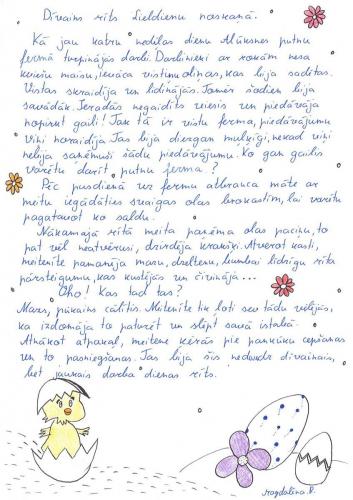 Dīvains rīts Lieldienu noskaņā.
Kā jau katru nedēļas dienu Alūksnes putnu
fermā turpinājās darbi. Darbinieki ar rokām nesa
kviešu maisus, ievāca vistiņu oliņas, kas bija sadētas.
Vistas skraidīja un lidinājās. Tomēr šodien bija
savādāk. Ieradās negaidīts viesis un piedāvāja
nopirkt gaili! Tak tā ir vistu ferma, piedāvājumu
viņi noraidīja. Tas bija diezgan muļķīgi, nekad viņi
nebija saņēmuši šādu piedāvājumu. Ko gan gailis
varētu darīt putnu fermā?
Pēc pusdienā uz fermu atbrauca māte ar
meitu iegādāties svaigas olas brokastīm, lai varētu
pagatavot ko saldu.
Nākamajā rītā meita paņēma olas paciņu, to
pat vēl neatvērusi, dzirdēja krakšķi. Atverot kasti,
meitenīte pamanīja mazu, dzeltenu, bumbai līdzīgu rīta
pārsteigumu, kas kustējās un čivināja...
Oho! Kas tad tas?
Mazs, pūkains cālītis. Meitenīte tik ļoti sev tādu vēlējās,
ka izdomāja to paturēt un slēpt savā istabā.
Atnākot atpakaļ, meitene ķērās pie pankūku cepšanas
un to pasniegšanas. Tas bija šis nedaudz dīvainais,
bet jaukais darba dienas rīts.
Magdalēna.